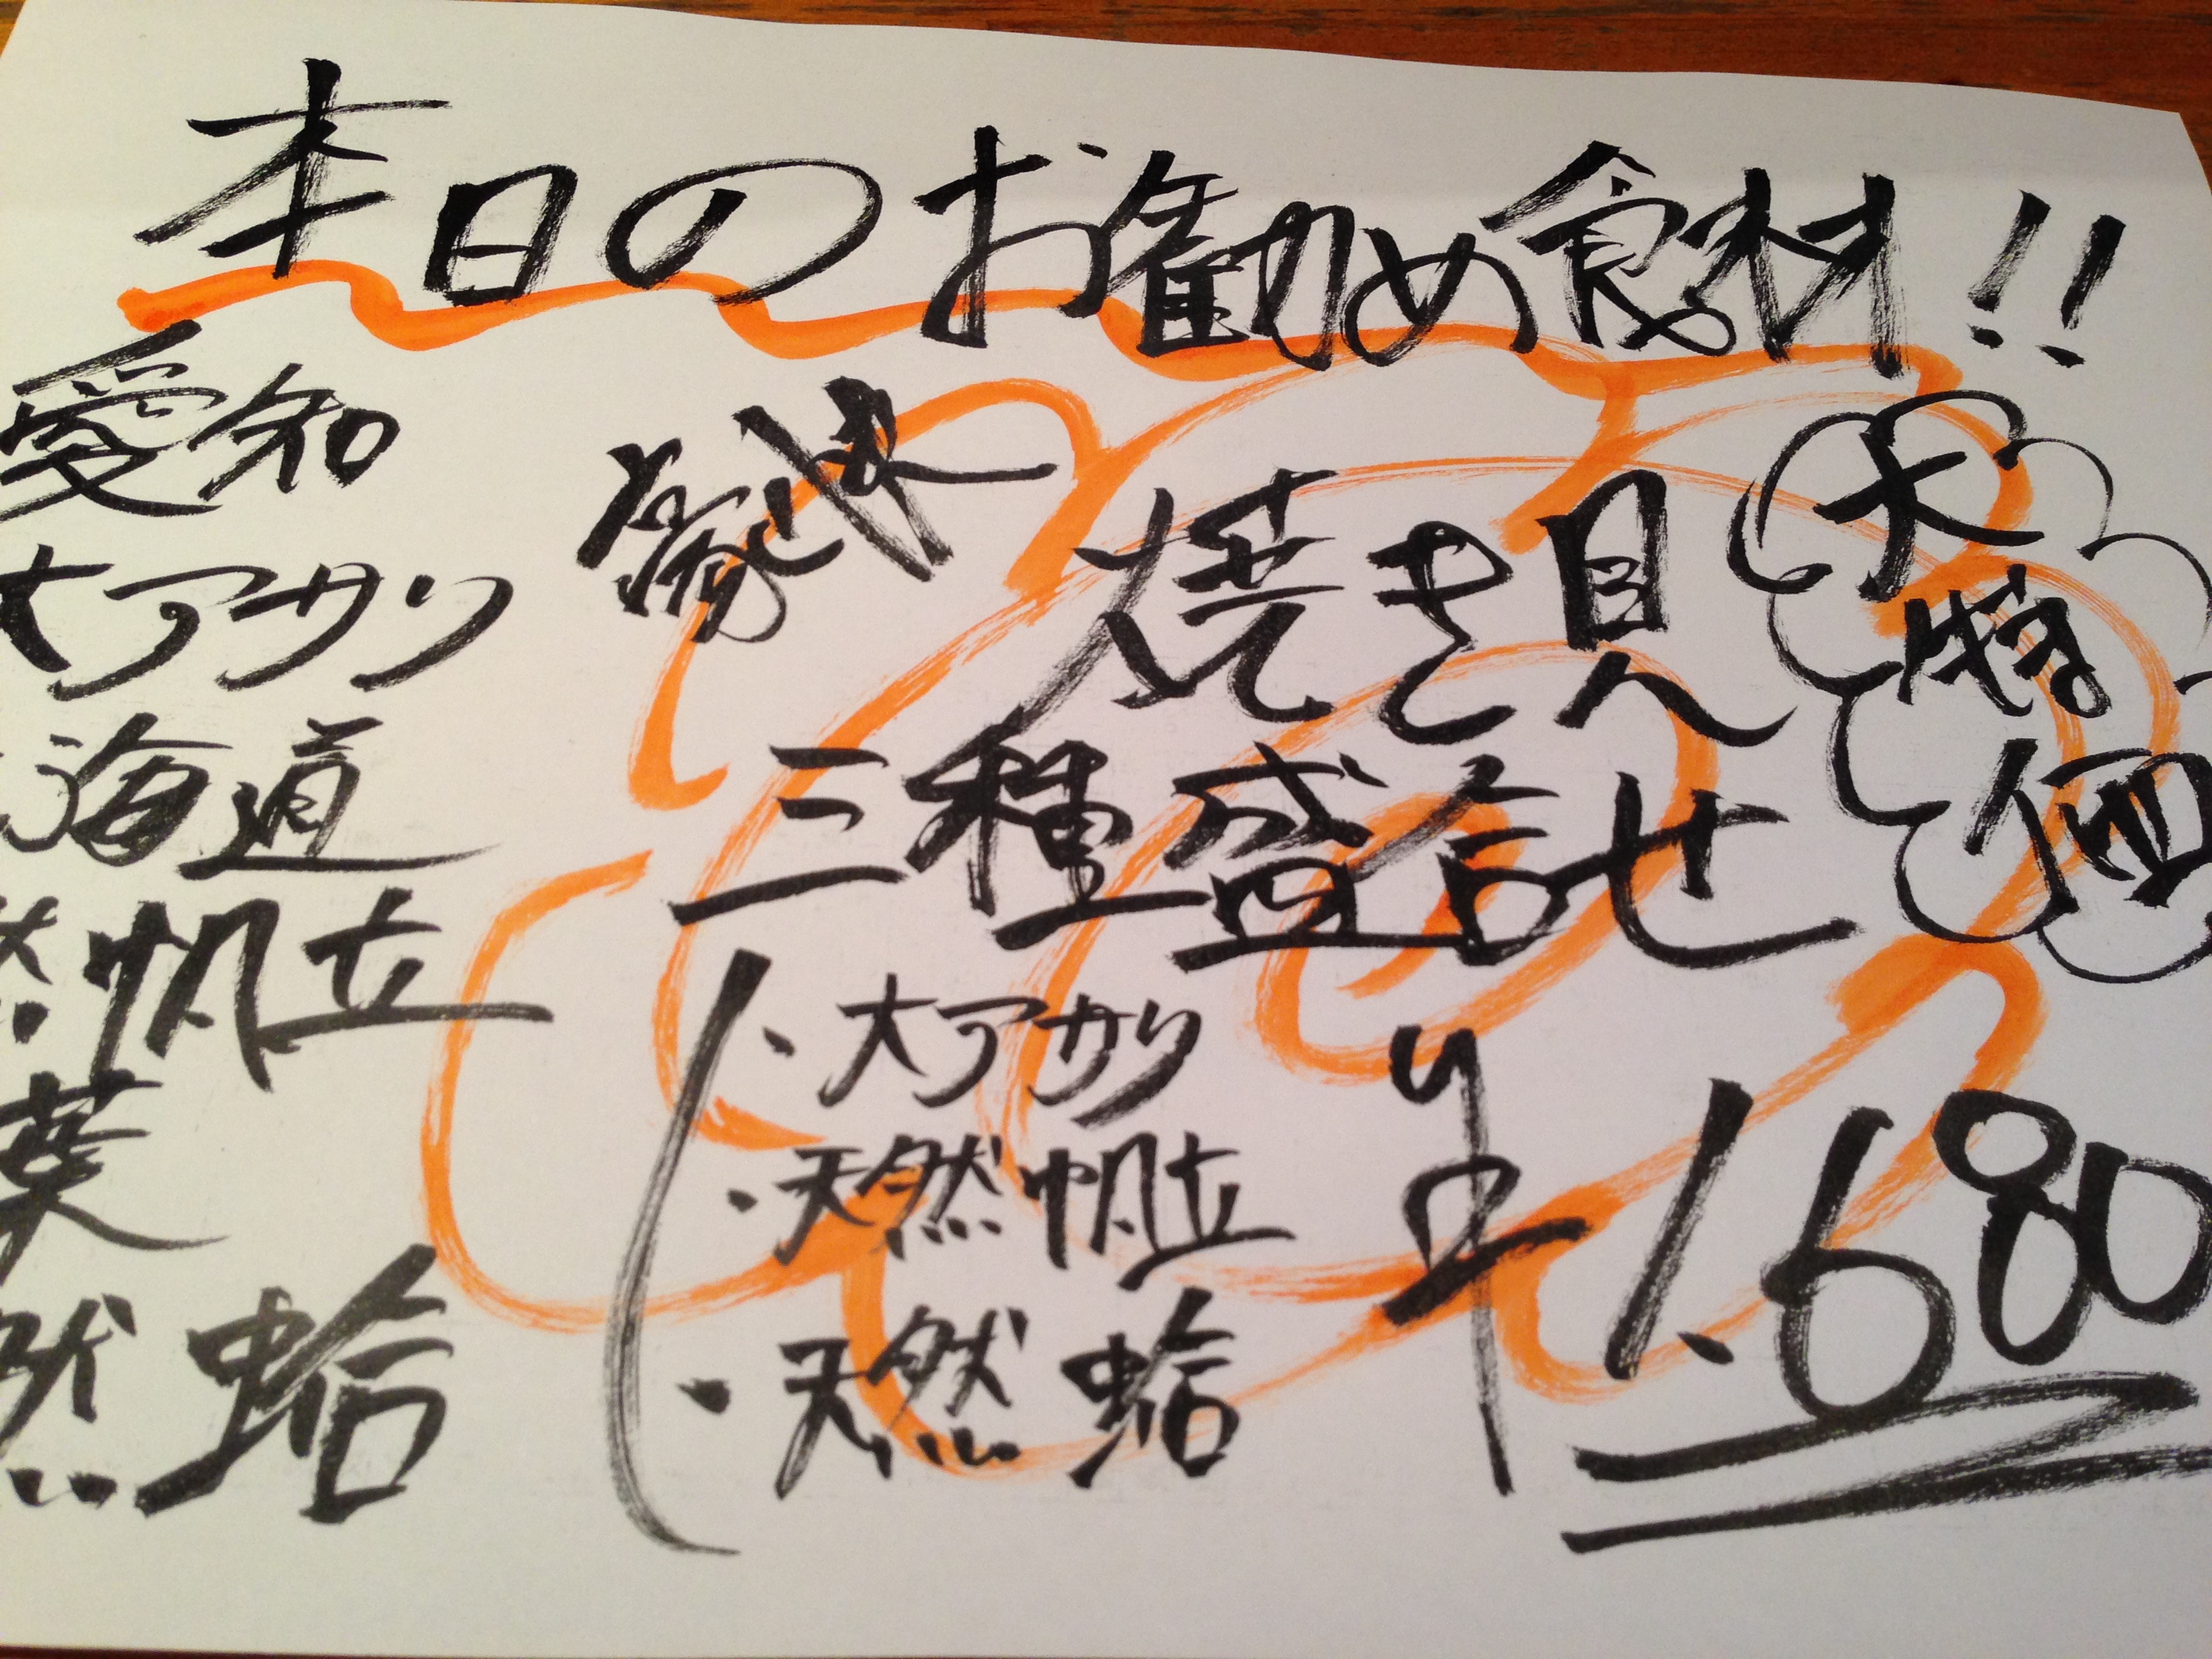 本日のお勧め食材!!
愛知
大アサリ
海道
然帆立
葉
然 蛤
豪快
焼き貝
三種盛合せ
大特価
・大アサリ
・天然帆立
・天然 蛤
¥1.680